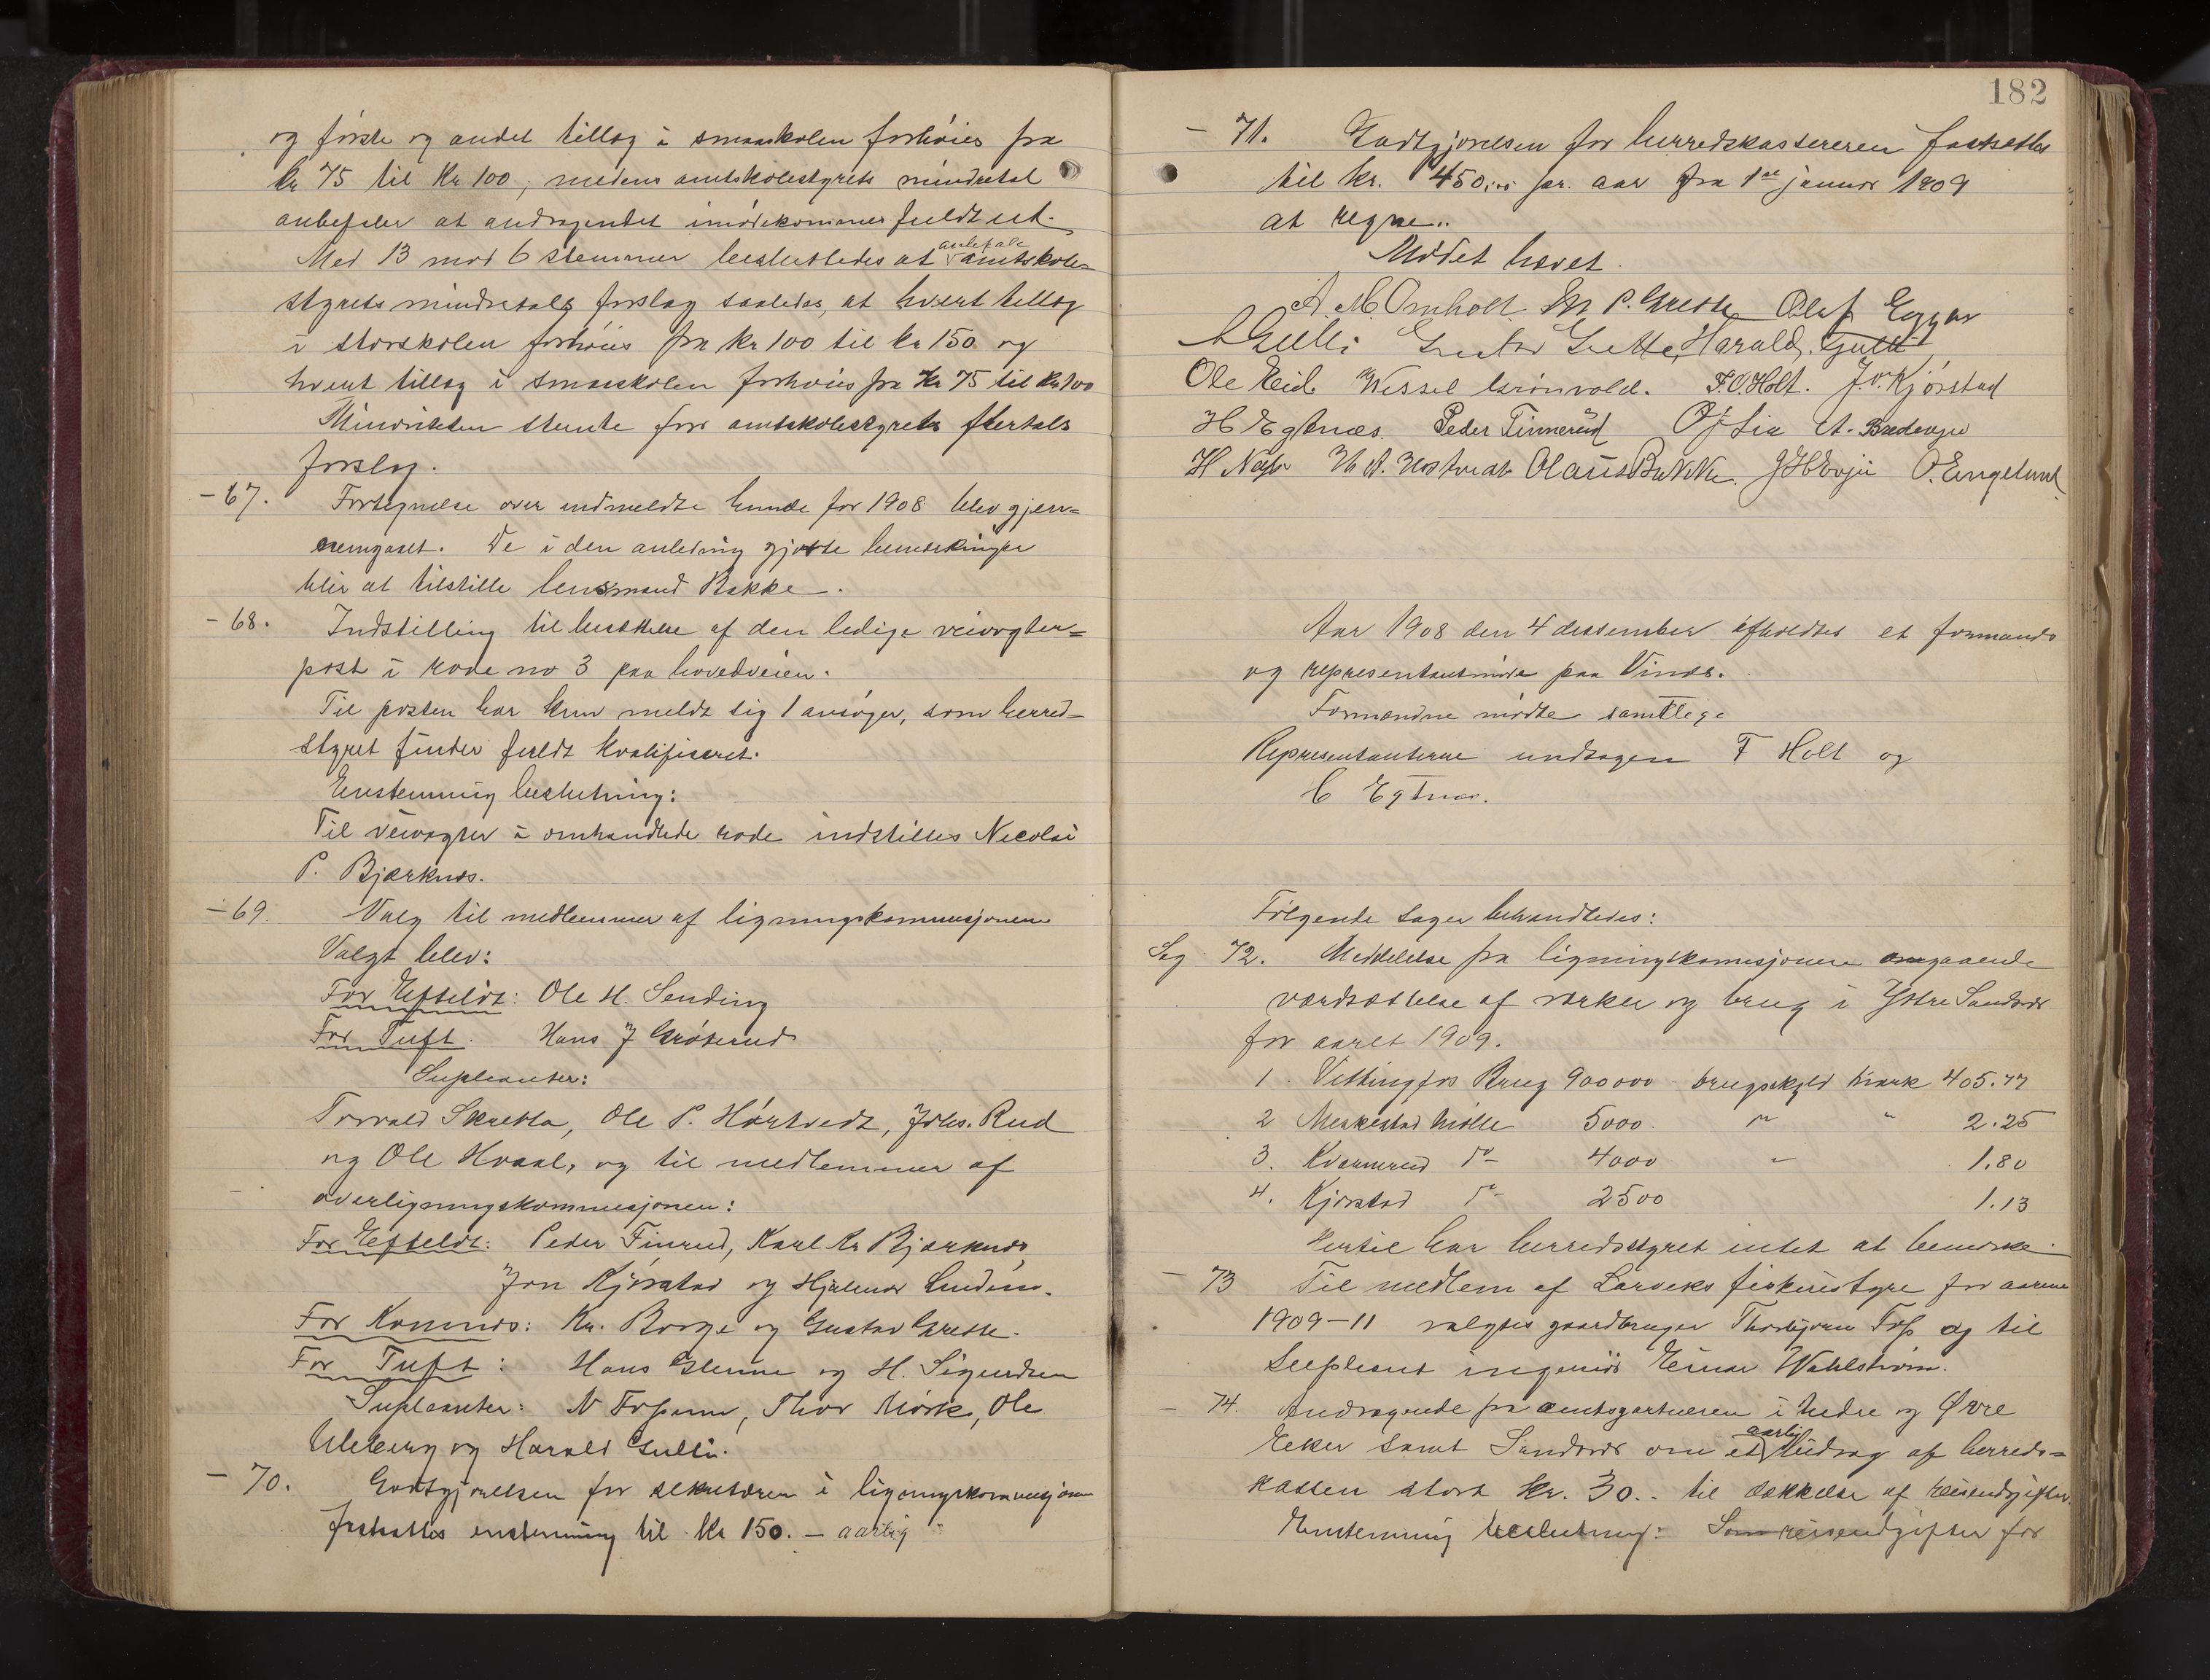 og første og andet tillæg i smaaskolen forhøies fra
kr 75 til kr 100; medens amtskolestyrets mindretal
anbefaler at andragendet imødekommes fuldt ud.
Med 13 mod 6 stemmer besluttedes at anbefale amtskole=
styrets mindretals forslag saaledes, at hvert tillæg
i storskolen forhøies fra kr 100 til kr 150 og
hvert tillæg i smaaskolen forhøies fra kr 75 til kr 100
Minoriteten stemte for amtskolestyrets flertals
forslag.
- 67. Fortegnelse over indmeldte hunde for 1908 blev gjen=
nemgaaet. De i den anledning gjorte bemerkninger
blir at tilstille lensmand Bakke.
- 68. Indstilling til besættelse af den ledige veivogter=
post i rode no 3 paa hovedveien.
Til posten har kun meldt sig 1 ansøger, som herred=
styret finder fuldt kvalificeret.
Enstemmig beslutning:
Til veivogter i omhandlede rode indstilles Necolai
P. Bjærknes.
- 69. Valg til medlemmer af ligningskommisjonen
Valgt blev:
For Efteløt: Ole H. Sending
For Tuft. Hans J Grøterud
Supleanter:
Torvald Skretta, Ole P. Hørtvedt, Johs. Rud
og Ole Hvaal, og til medlemmer af
overligningskommisjonen:
For Efteløt: Peder Finrud, Karl Kr Bjærknes,
Jon Kjørstad og Hjalmar Lindem.
For Komnes: Kr. Borge og Gustav Grette.
For Tuft: Hans Glenne og H. Sigurdsen
Supleanter: N Fossum, Thor Mørk, Ole
Ulleberg og Harald Gulli.
- 70. Godtgjørelsen for sekretæren i ligningskommisjonen
fastsattes enstemmig til kr 150. - aarlig
182
- 71. Godtgjørelsen for herredskassereren fastsættes
til kr. 450.- pr. aar fra 1ste januar 1909
at regne..
Mødet hævet.
A. M. Omholt M P. Grette Olaf Eggar
A Gulli Gustav Grette, Harald Gulli
Ole Eid. Wessel Grønvold. F. O. Holt. J. O. Kjørstad
H Egtnæs. Peder Finnerud O J Lia A. Brædevgn
H Næss H A. Hostvedt Olaus Bakke. J H Evju O. Englund
Aar 1908 den 4 dessember afholdtes et formands
og representantmøde paa Vinæs.
Formændne mødte samtlege
Representanterne undtagen F Holt og
C Egtnæs.
Følgende sager behandledes:
Sag 72. Meddelelse fra ligningskomisjonen angaaende
værdsættelse af verker og brug i Ytre Sandsvær
for aaret 1909.
1. Vittingfos Brug 900000 brugsskyld mark 405.77
2 Merkestad Mølle 5000. " " 2.25
3. Kvarnerud do 4000 " 1.80
4. Kjørstad do 2500 1.13
Hertil har herredsstyret intet at bemerke.
- 73 Til medlem af Larviks fiskeristyre for aarene
1909-11 valgtes gaardbruger Thorbjørn Foss og til
supleant ingeniør Einar Wahlstrøm.
- 74. Andragende fra amtsgartneren i Nedre og Øvre
Eker samt Sandsvær om et aarlig bidrag af herreds=
kassen stort kr. 30.- til dækkelse af reiseudgifter.
Enstemmig beslutning: Som reiseudgifter for